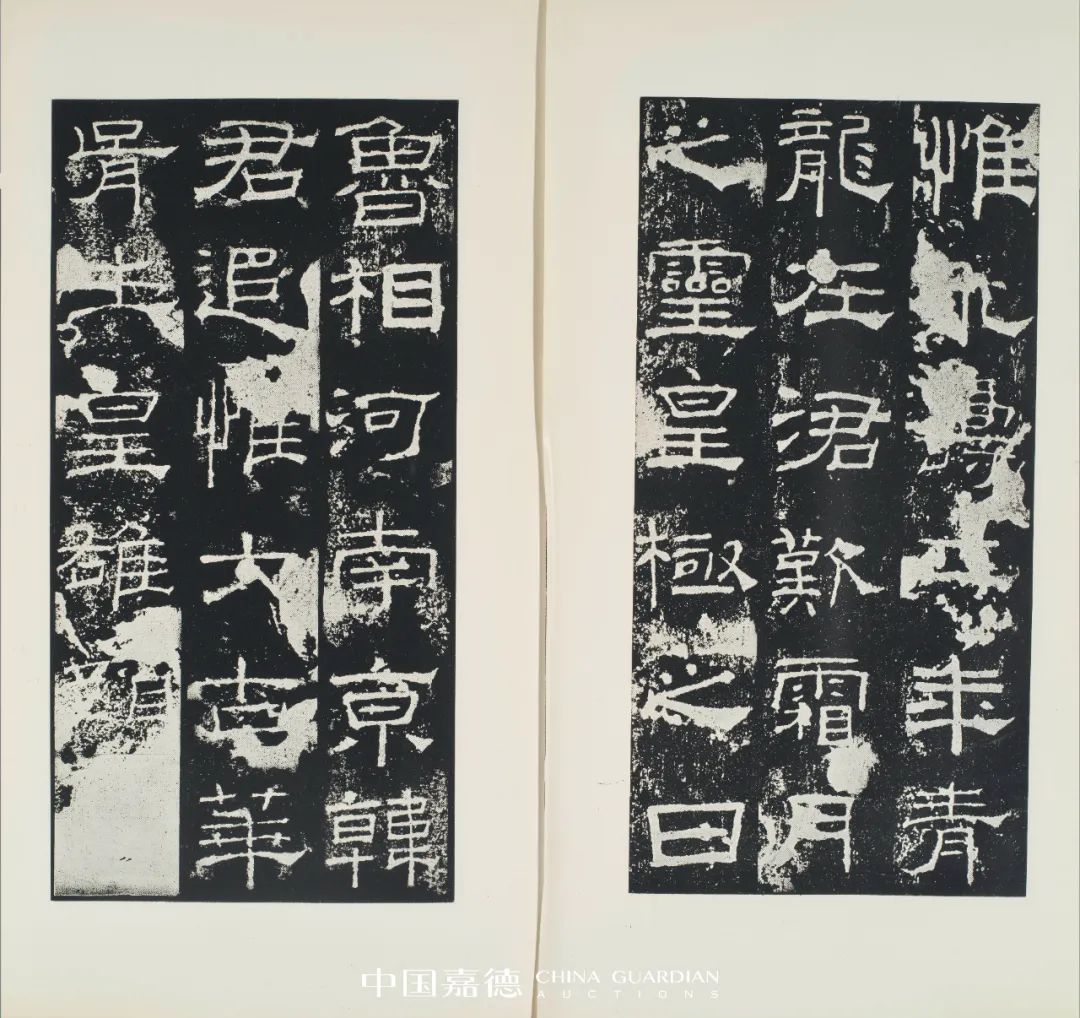 惟永壽二年青
龍在涒歎霜月
之靈皇極之日
魯相河南京韓
君追惟大古華
胥生皇雄顏
中国嘉德 CHINA GUARDIAN
AUCTIONS